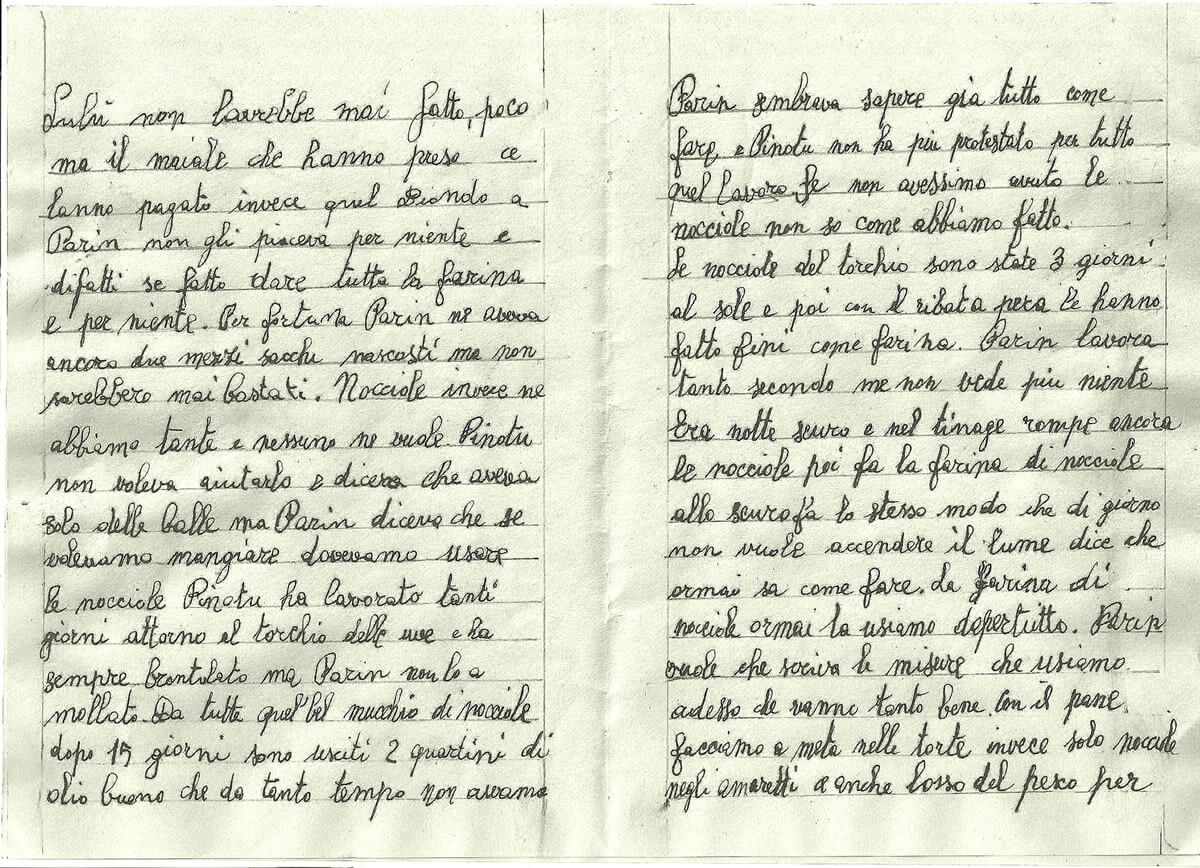 Lulù non lavrebbe mai fatto, poco
ma il maiale che hanno preso ce
lanno pagato invece quel Biondo a
Parin non gli piaceva per niente e
difatti se fatto dare tutta la farina
e per niente. Per fortuna Parin ne aveva
ancora due mezzi sacchi nascosti ma non
sarebbero mai bastati. Nocciole invece ne
abbiamo tante e nessuno ne vuole Pinotu
non voleva aiutarlo e diceva che aveva
solo delle balle ma Parin diceva che se
volevamo mangiare dovevamo usare
le nocciole Pinotu ha lavorato tanti
giorni attorno al torchio delle uve e ha
sempre brontolato ma Parin non lo a
mollato. Da tutte quel'bel mucchio di nocciole
dopo 15 giorni sono usciti 2 quartini di
olio buono che da tanto tempo non avevamo
Parin sembrava sapere gia tutto come
fare, e Pinotu non ha piu protestato per tutto
quel lavoro. Se non avessimo avuto le
nocciole non so come abbiamo fatto.
Le nocciole del torchio sono state 3 giorni
al sole e poi con il ribata pera le hanno
fatto fini come farina. Parin lavora
tanto secondo me non vede piu niente
Era notte scuro e nel tinage rompe ancora
le nocciole poi fa la farina di nocciole
allo scuro fa lo stesso modo che di giorno
non vuole accendere il lume dice che
ormai sa come fare. La farina di
nocciole ormai la usiamo dapertutto. Parin
vuole che scriva le misure che usiamo
adesso che vanno tanto bene. con il pane
facciamo a metà nelle torte invece solo nocciole
negli amaretti e anche losso del pesco per